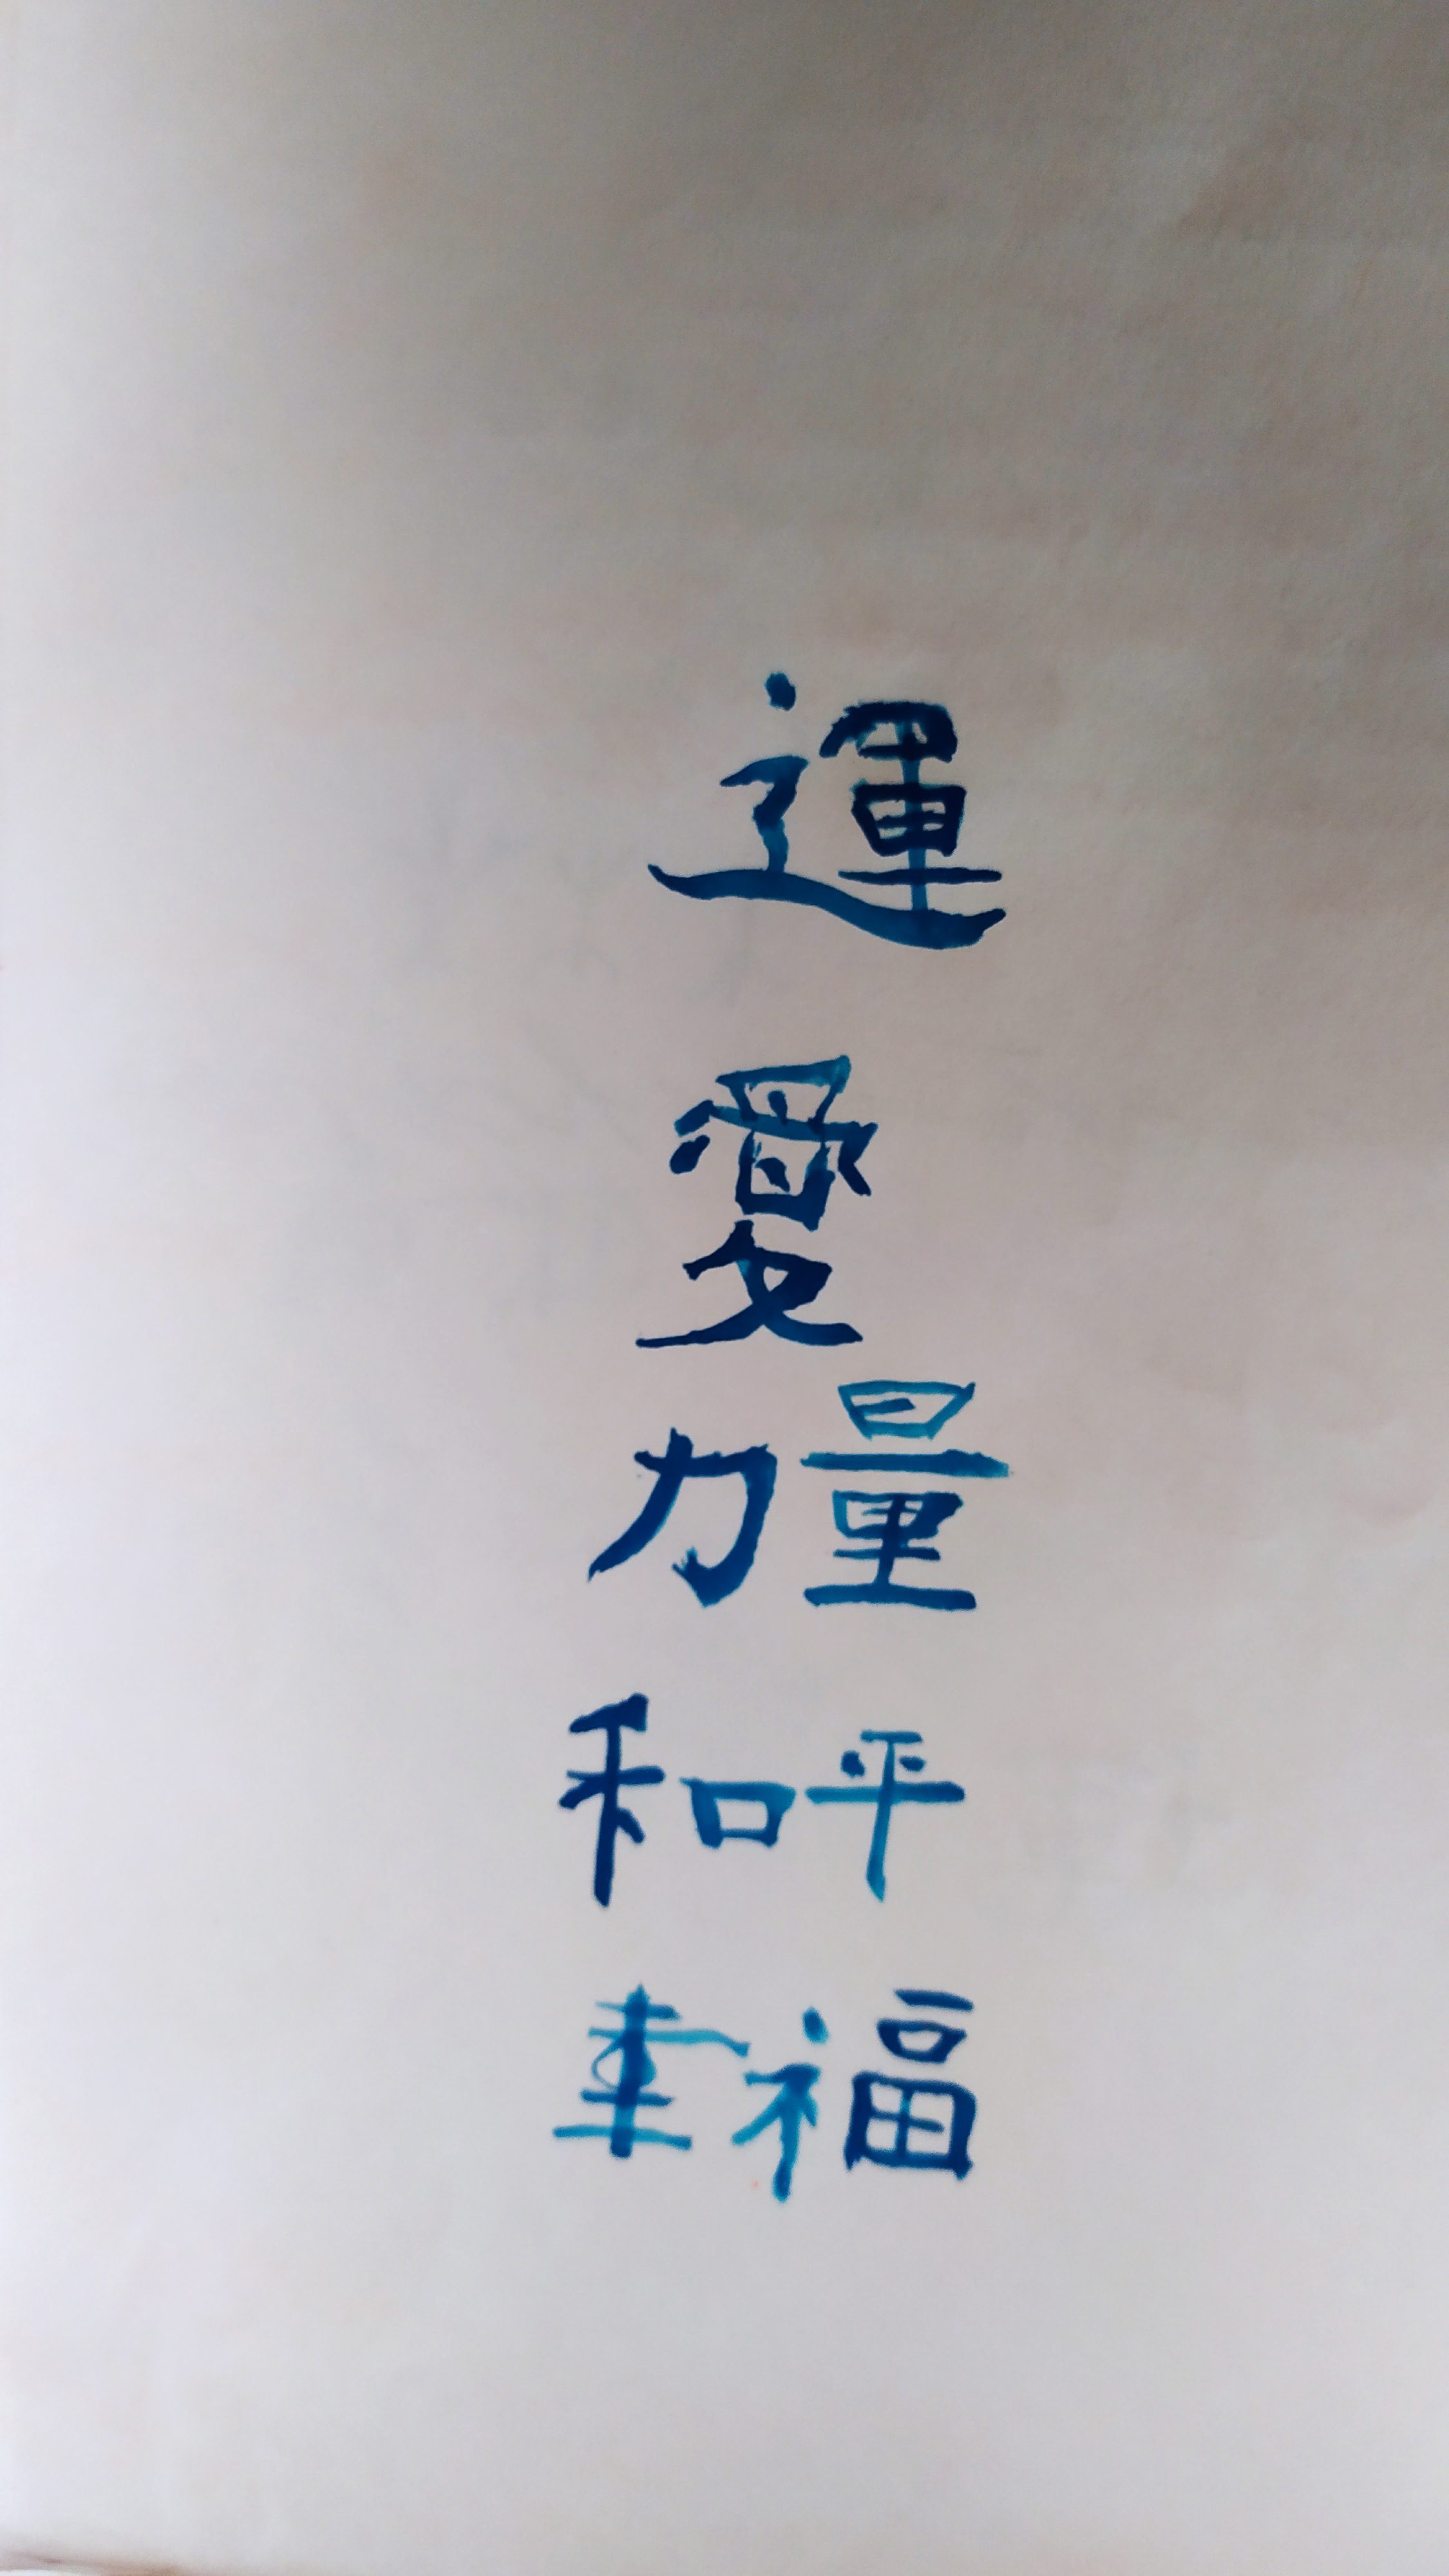 運
愛
力量
和平
幸福